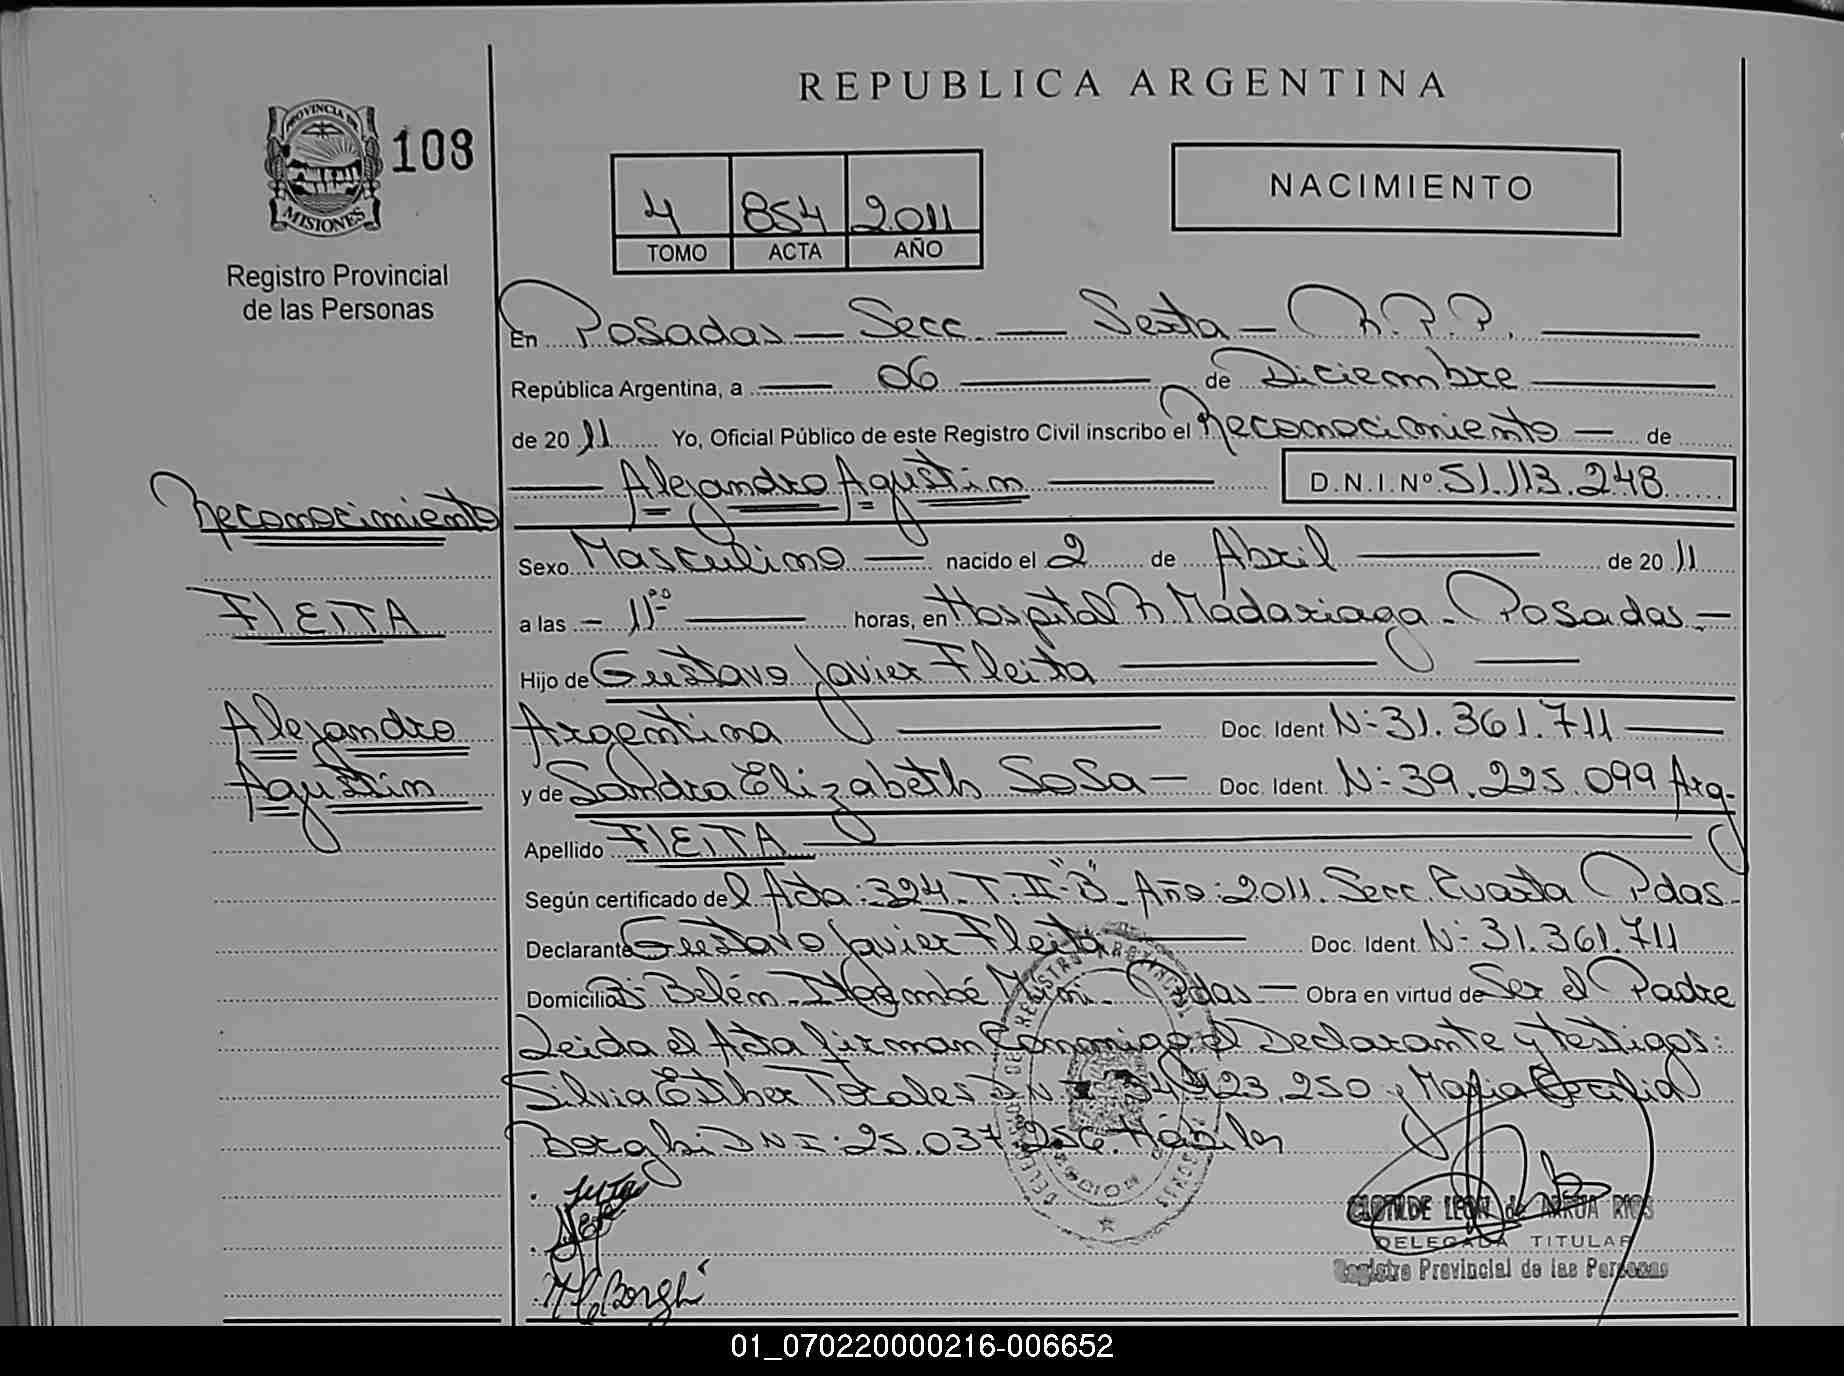 REPUBLICA ARGENTINA
PROVINCIA DE
MISIONES
108
Registro Provincial
de las Personas
4 854 2011
TOMO ACTA AÑO
NACIMIENTO
En Posadas — Secc. — Sexta — R.P.P. —
República Argentina, a — 06 — de Diciembre —
de 2011 Yo, Oficial Público de este Registro Civil inscribo el Reconocimiento — de
— Alejandro Agustin — D.N.I. Nº 51.113.248
Reconocimiento
Sexo Masculino — nacido el 2 de Abril — de 2011
FlEITA
a las — 11⁰⁰ — horas, en Hospital R Madariaga - Posadas —
Hijo de Gustavo Javier Fleita —
Alejandro
Agustin
Argentina — Doc. Ident N: 31.361.711 —
y de Sandra Elizabeth SoSa — Doc. Ident. N: 39.225.099 Arg-
Apellido FlEITA
Según certificado del Acta: 324. T. II-"B" - Año: 2011. Secc. Cuarta Pdas-
Declarante Gustavo Javier Fleita — Doc. Ident. N: 31.361.711
Domicilio Bº Belén - Pdas — Obra en virtud de Ser el Padre
Leida el Acta firman Conmigo el Declarante y testigos:
Silvia Esther 250 y Maria Cecilia
Borghi DNI: 25.037.256. Hábiles
M C Borghi
CLOTILDE LEON de ARRUA RIOS
DELEGADA TITULAR
Registro Provincial de las Personas
01_070220000216-006652